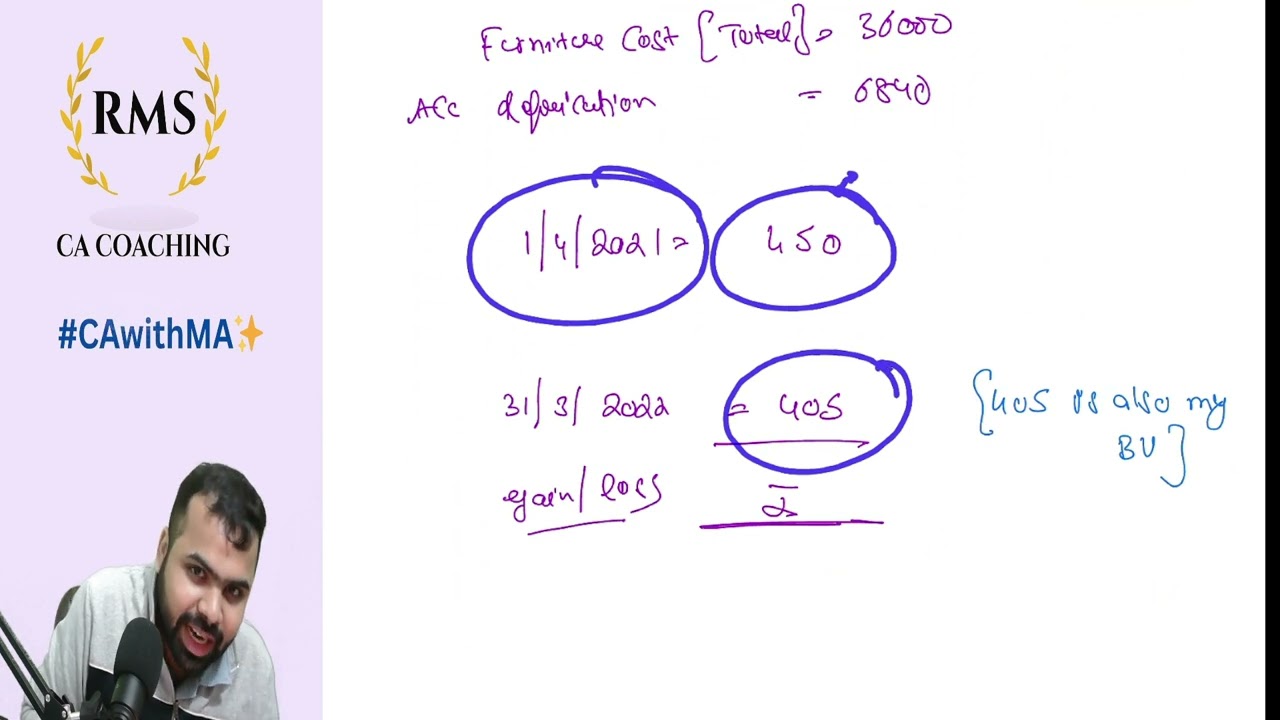 RMS
CA COACHING
#CAwithMA✨
Furniture Cost [Total] = 36000
Acc depreciation = 6840
1/4/2021 = 450
31/3/2022 = 405
{405 is also my
BV}
gain/loss